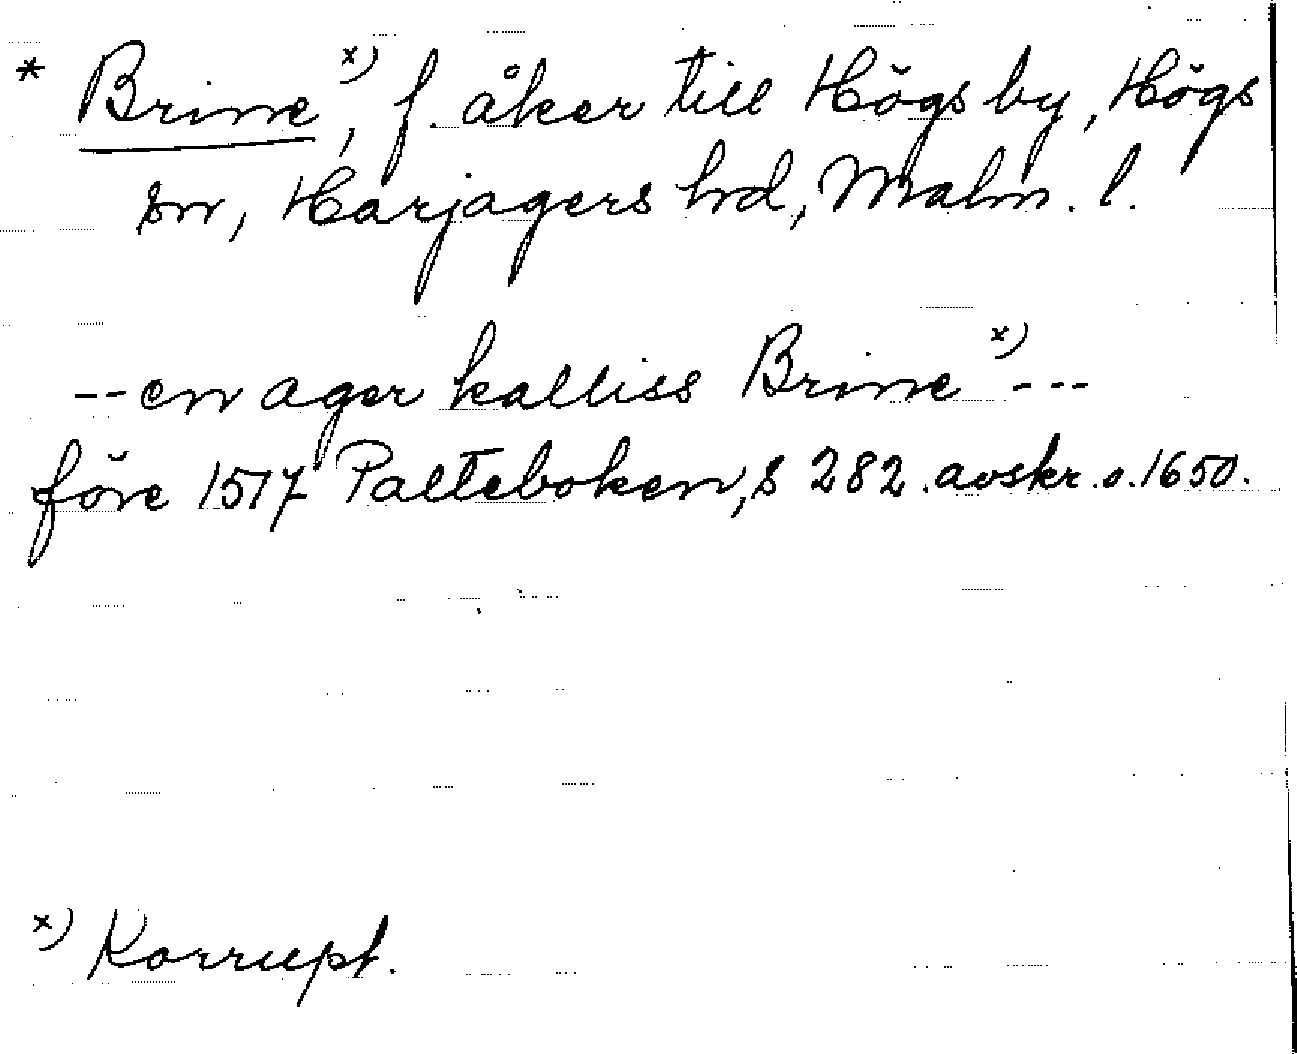 * Brine x), f. åker till Högs by, Högs
sn, Harjagers hd, Malm. l.
-- en ager kalliss Brine x) ---
före 1517 Palteboken, s 282. avskr. o. 1650.
x) Korrupt.